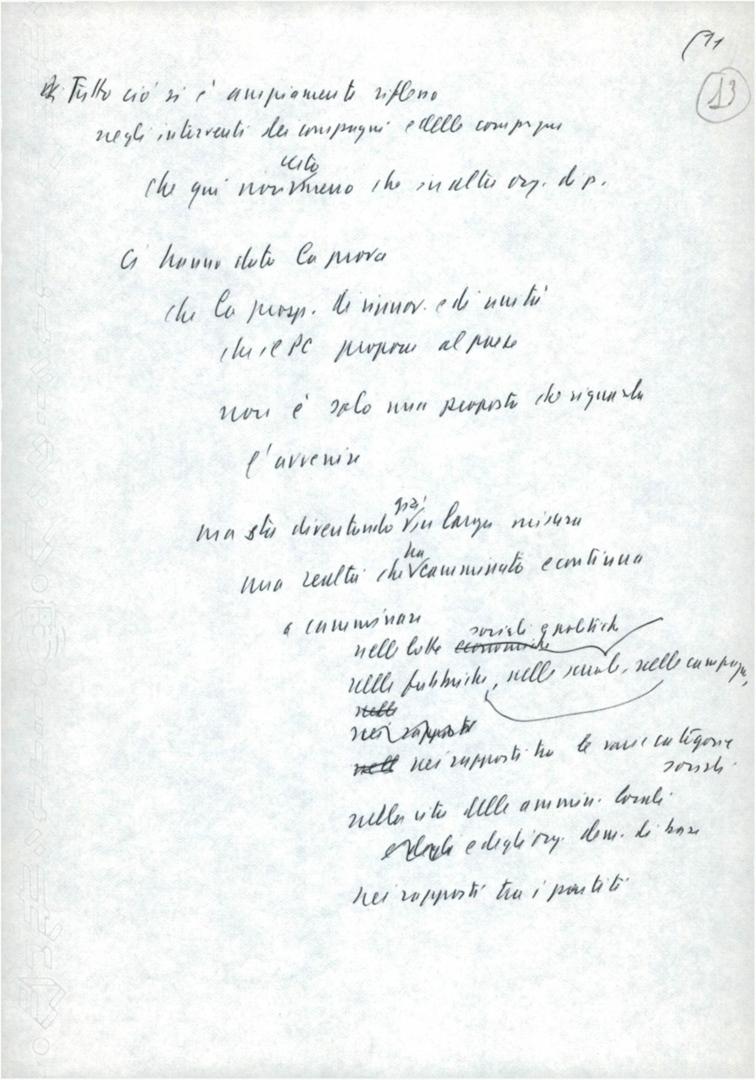 13
Tutto ciò si è ampiamente riflesso
negli interventi dei compagni e delle compagne
che qui non meno che in altre org. di p.
Ci hanno dato la prova
che la prosp. di rinnov. e di unità
che il PC propone al paese
non è solo una proposta che riguarda
l'avvenire
ma sta diventando già in larga misura
una realtà che ha camminato e continua
a camminare
nelle lotte economiche sociali e politiche
nelle fabbriche, nelle scuole, nelle campagne,
nelle
nei rapporti
nell nei rapporti tra le varie categorie
sociali
nella vita delle ammin. locali
e degli e degli org. dem. di base
nei rapporti tra i partiti